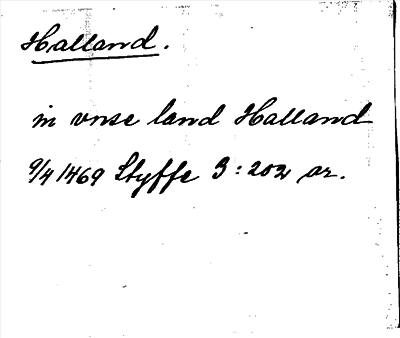 Halland.
in vnse land Halland
9/4 1469 Styffe 3:202 or.